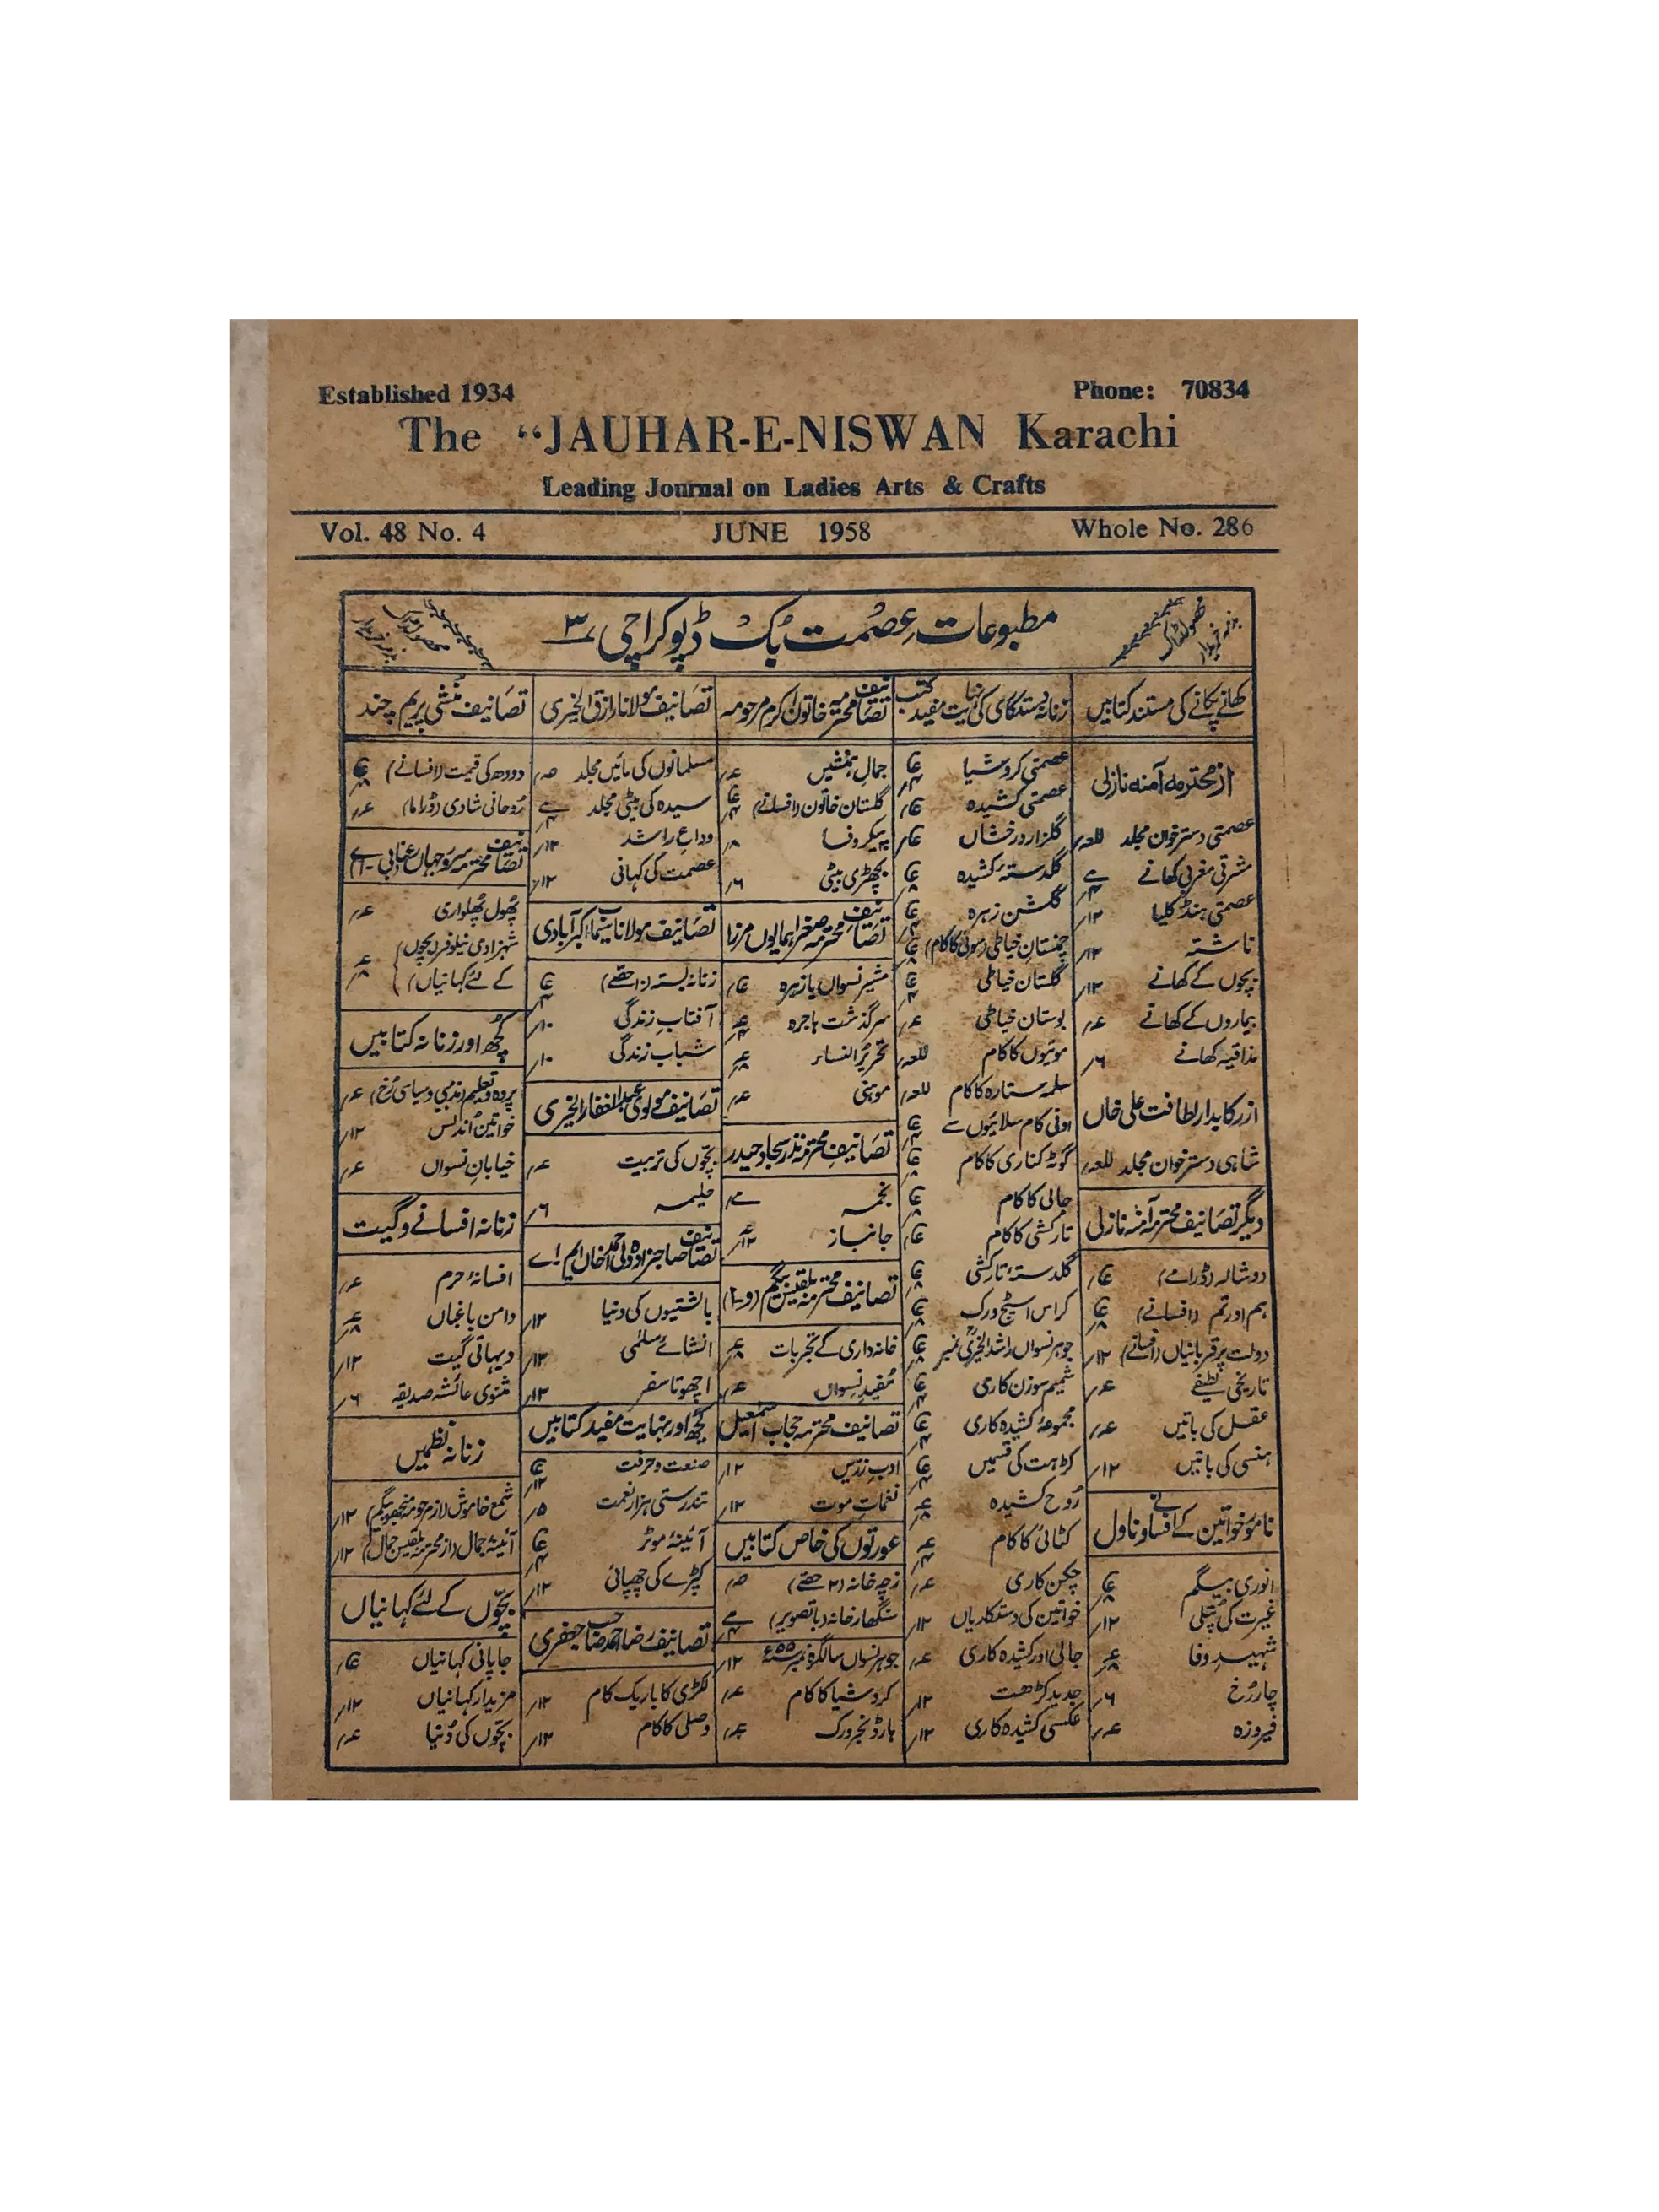 Established 1934
Phone: 70834
The “JAUHAR-E-NISWAN Karachi
Leading Journal on Ladies Arts & Crafts
Vol. 48 No. 4
JUNE 1958
Whole No. 286
مطبوعات عصمت بک ڈپو کراچی ۳
کھانے پکانے کی مستند کتابیں
از محترمہ آمنہ نازلی
عصمتی دسترخوان مجلد للعہ
مشرقی مغربی کھانے
عصمتی ہنڈکلیا ۱۲؍
ناشتہ ۱۲؍
بچوں کے کھانے ۱۲؍
بیماروں کے کھانے عہ؍
مذاقیہ کھانے ۶؍
از رکابدار لطافت علی خاں
شاہی دسترخوان مجلد للعہ
دیگر تصانیف محترمہ آمنہ نازلی
دوشالہ (ڈرامے)
ہم اور تم (افسانے)
دولت پر قربانیاں (افسانے) ۱۲؍
تاریخی لطیفے عہ؍
عقل کی باتیں عہ؍
ہنسی کی باتیں ۱۲؍
نامور خواتین کے افسانے و ناول
انوری بیگم
غیرت کی پتلی ۱۲؍
شہید وفا
چار رخ ۶؍
فیروزہ عہ؍
زنانہ دستکاری کی نہایت مفید کتب
عصمتی کروشیا
عصمتی کشیدہ
گلزار درخشاں
گلدستہ کشیدہ
گلشن زہرہ
چمنستان خیاطی (سوئی کا کام)
گلستان خیاطی
بوستان خیاطی عہ؍
موتیوں کا کام للعہ
سلمہ ستارہ کا کام للعہ
اونی کام سلائیوں سے
گوٹہ کناری کا کام
جالی کا کام
تارکشی کا کام
گلدستہ تارکشی
کراس اسٹچ ورک
جوہر نسواں راشد الخیری نمبر
شمیم سوزن کاری
مجموعہ کشیدہ کاری
کڑہت کی قسمیں
روح کشیدہ
کٹائی کا کام
چکن کاری عہ؍
خواتین کی دستکاریاں ۱۲؍
جالی اور کشیدہ کاری عہ؍
جدید کڑھت ۱۲؍
عکسی کشیدہ کاری ۱۲؍
تصانیف محترمہ خاتون اکرم مرحومہ
جمال ہمنشیں عہ؍
گلستان خاتون (افسانے)
پیکر وفا ۸؍
بچھڑی بیٹی ۶؍
تصانیف محترمہ صغرا ہمایوں مرزا
مشیر نسواں یا زہرہ
سرگذشت ہاجرہ
تحریر النساء
موہنی عہ؍
تصانیف محترمہ نذر سجاد حیدر
نجمہ
جانباز
تصانیف محترمہ بلقیس بیگم (و۔ا)
خانہ داری کے تجربات
مفید نسواں عہ؍
تصانیف محترمہ حجاب اسمعیل
ادب زریں ۱۲؍
نغمات موت ۱۲؍
عورتوں کی خاص کتابیں
زچہ خانہ (۲ حصے) صہ؍
سنگھار خانہ (باتصویر)
جوہر نسواں سالگرہ نمبر ۵۵ء ۱۲؍
کروشیا کا کام عہ؍
ہارڈنجر ورک
تصانیف مولانا رازق الخیری
مسلمانوں کی مائیں مجلد صہ؍
سیدہ کی بیٹی مجلد
وداع راشد ۱۲؍
عصمت کی کہانی ۱۲؍
تصانیف مولانا سیماب اکبر آبادی
زنانہ بستہ (۱۰ حصے)
آفتاب زندگی ۱۰؍
شباب زندگی ۱۰؍
تصانیف مولوی عبدالغفار الخیری
بچوں کی تربیت عہ؍
حلیمہ ۶؍
تصانیف صاحبزادہ ولی احمد خاں ایم۔اے
بالشتیوں کی دنیا ۱۲؍
انشائے سلمی ۱۲؍
اچھوتا سفر ۱۲؍
کچھ اور نہایت مفید کتابیں
صنعت و حرفت
تندرستی ہزار نعمت ۵؍
آئینہ موٹر
کپڑے کی چھپائی ۱۲؍
تصانیف رضا احمد صاحب جعفری
لکڑی کا باریک کام ۱۲؍
وصلی کا کام ۱۲؍
تصانیف منشی پریم چند
دودھ کی قیمت (افسانے)
روحانی شادی (ڈراما) عہ؍
پھول پھلواری عہ؍
شہزادی نیلوفر (بچوں
کے لئے کہانیاں)
کچھ اور زنانہ کتابیں
پردہ و تعلیم (مذہبی و سیاسی رخ) عہ؍
خواتین اندلس ۱۲؍
خیابان نسواں عہ؍
زنانہ افسانے و گیت
افسانہ حرم عہ؍
دامن باغباں
دیہاتی گیت ۱۲؍
مثنوی عائشہ صدیقہ ۶؍
زنانہ نظمیں
شمع خاموش (از مرحومہ منجھو بیگم) ۱۲؍
آئینہ جمال (از محترمہ بلقیس جمال) ۱۲؍
بچوں کے لئے کہانیاں
جاپانی کہانیاں
مزیدار کہانیاں ۱۲؍
بچوں کی دنیا عہ؍